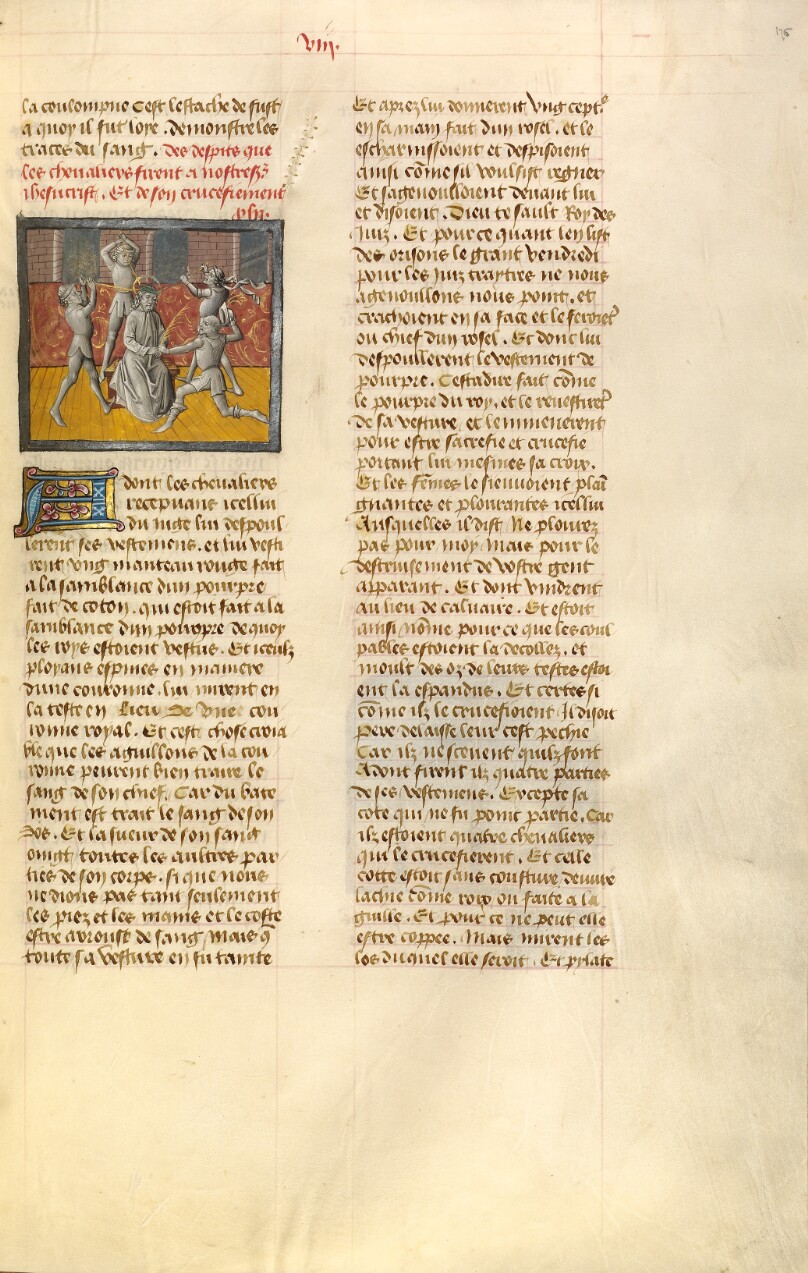 Viij.
la coulompne Cest lestache de fust
a quoy il fut loye . demonstre les
traces du sang . Des despits que
les chevaliers firent a nostre sr
ihesucrist . Et de son crucefiement
xlij.
Adont les chevaliers
recepvans icellui
du iuge lui despoul
lerent ses vestemens . et lui vesti
rent vng manteau rouge fait
a la samblance dun pourpre
fait de coton . qui estoit fait a la
samblance dun pourpre de quoy
les roys estoient vestus . Et iceulz
ployans espines en maniere
dune couronne . lui mirent en
la teste en Lieu De Vne cou
ronne royal . Et cest chose croia
ble que les aguillons de la cou
ronne peurent bien traire le
sang de son chief . Car du bate
ment est trait le sang de son
dos . Et la sueur de son sang
oingt toutes les aultres par
ties de son corps . si que nous
ne dions pas tant seulement
les piez et les mains et le coste
estre arrouse de sang , Mais q̄
toute sa vesture en fu tainte
Et aprez lui donnerent Vng ceptre
en sa main fait dun rosel . et le
escharnissoient et despisoient
ainsi cōme sil voulsist regner
Et sagenoulloient deuant lui
et disoient . Dieu te sault Roy des
Juiz . Et pour ce quant len list
des orisons le grant vendredi
pour les Juiz traytres ne nous
agenoullons nous point . et
crachoient en sa face et le feroiet
ou chief dun rosel . Et donc lui
despoullerent le vestement de
pourpre . Cestadire fait cōme
le pourpre du roy . et le reuestiret
de sa vesture et lemmenerent
pour estre sacrefie et crucefie
portant lui mesmes sa croix .
Et les fēmes le sieuuoient plai
gnantes et plourantes icellui
Ausquelles il dist Ne plourez
pas pour moy Mais pour le
destruisement de vostre gent
apparant . Et dont vindrent
au lieu de caluaire . Et estoit
ainsi nōme pour ce que les coul
pables estoient la decollez . et
moult des oz de leurs testes estoi
ent la espandus . Et certes si
cōme ilz le crucefioient Il disoit
Pere delaisse leur cest pechie
Car ilz ne sceuent quilz font
Adont firent ilz quatre parties
de ses vestemens . Excepte sa
cote qui ne fu point partie . Car
ilz estoient quatre chevaliers
qui le crucefierent . Et celle
cotte estoit sans cousture deuure
lachie cōme roix ou faite a la
guille . Et pour ce ne peut elle
estre coppee . Mais mirent les
los duquel elle seroit . Et pylate